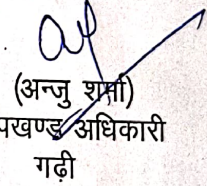 (अन्जु शर्मा)
पखण्ड अधिकारी
गढ़ी